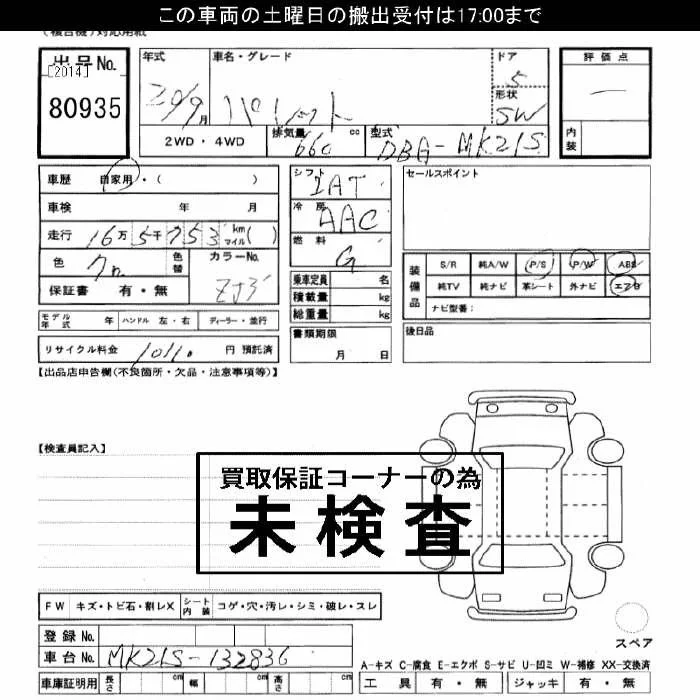 この車両の土曜日の搬出受付は17:00まで
(複合機)対応用紙
出品No.
[2014]
80935
年式
20/9月
車名・グレード
パレット
ドア
5
形状
SW
評価点
内装
2WD・4WD
排気量
660 cc
型式
DBA-MK21S
車歴 自家用・( )
車検 年 月
走行 16万5千753 km マイル( )
色
色替
カラーNo.
ZJ3
保証書 有・無
シフト
IAT
冷房
AAC
燃料
G
乗車定員 名
積載量 kg
総重量 kg
書類期限
月 日
セールスポイント
装備品
S/R 純A/W P/S P/W ABS
純TV 純ナビ 革シート 外ナビ エアB
ナビ型番:
後日品
モデル年式 年 ハンドル 左・右 ディーラー・並行
リサイクル料金 円 預託済
【出品店申告欄(不良箇所・欠品・注意事項等)】
【検査員記入】
買取保証コーナーの為
未検査
FW キズ・トビ石・割レX シート内装 コゲ・穴・汚レ・シミ・破レ・スレ
登録No.
車台No. MK21S-132836
車庫証明用 長さ cm 幅 cm 高さ cm
スペア
A-キズ C-腐食 E-エクボ S-サビ U-凹ミ W-補修 XX-交換済
工具 有・無 ジャッキ 有・無